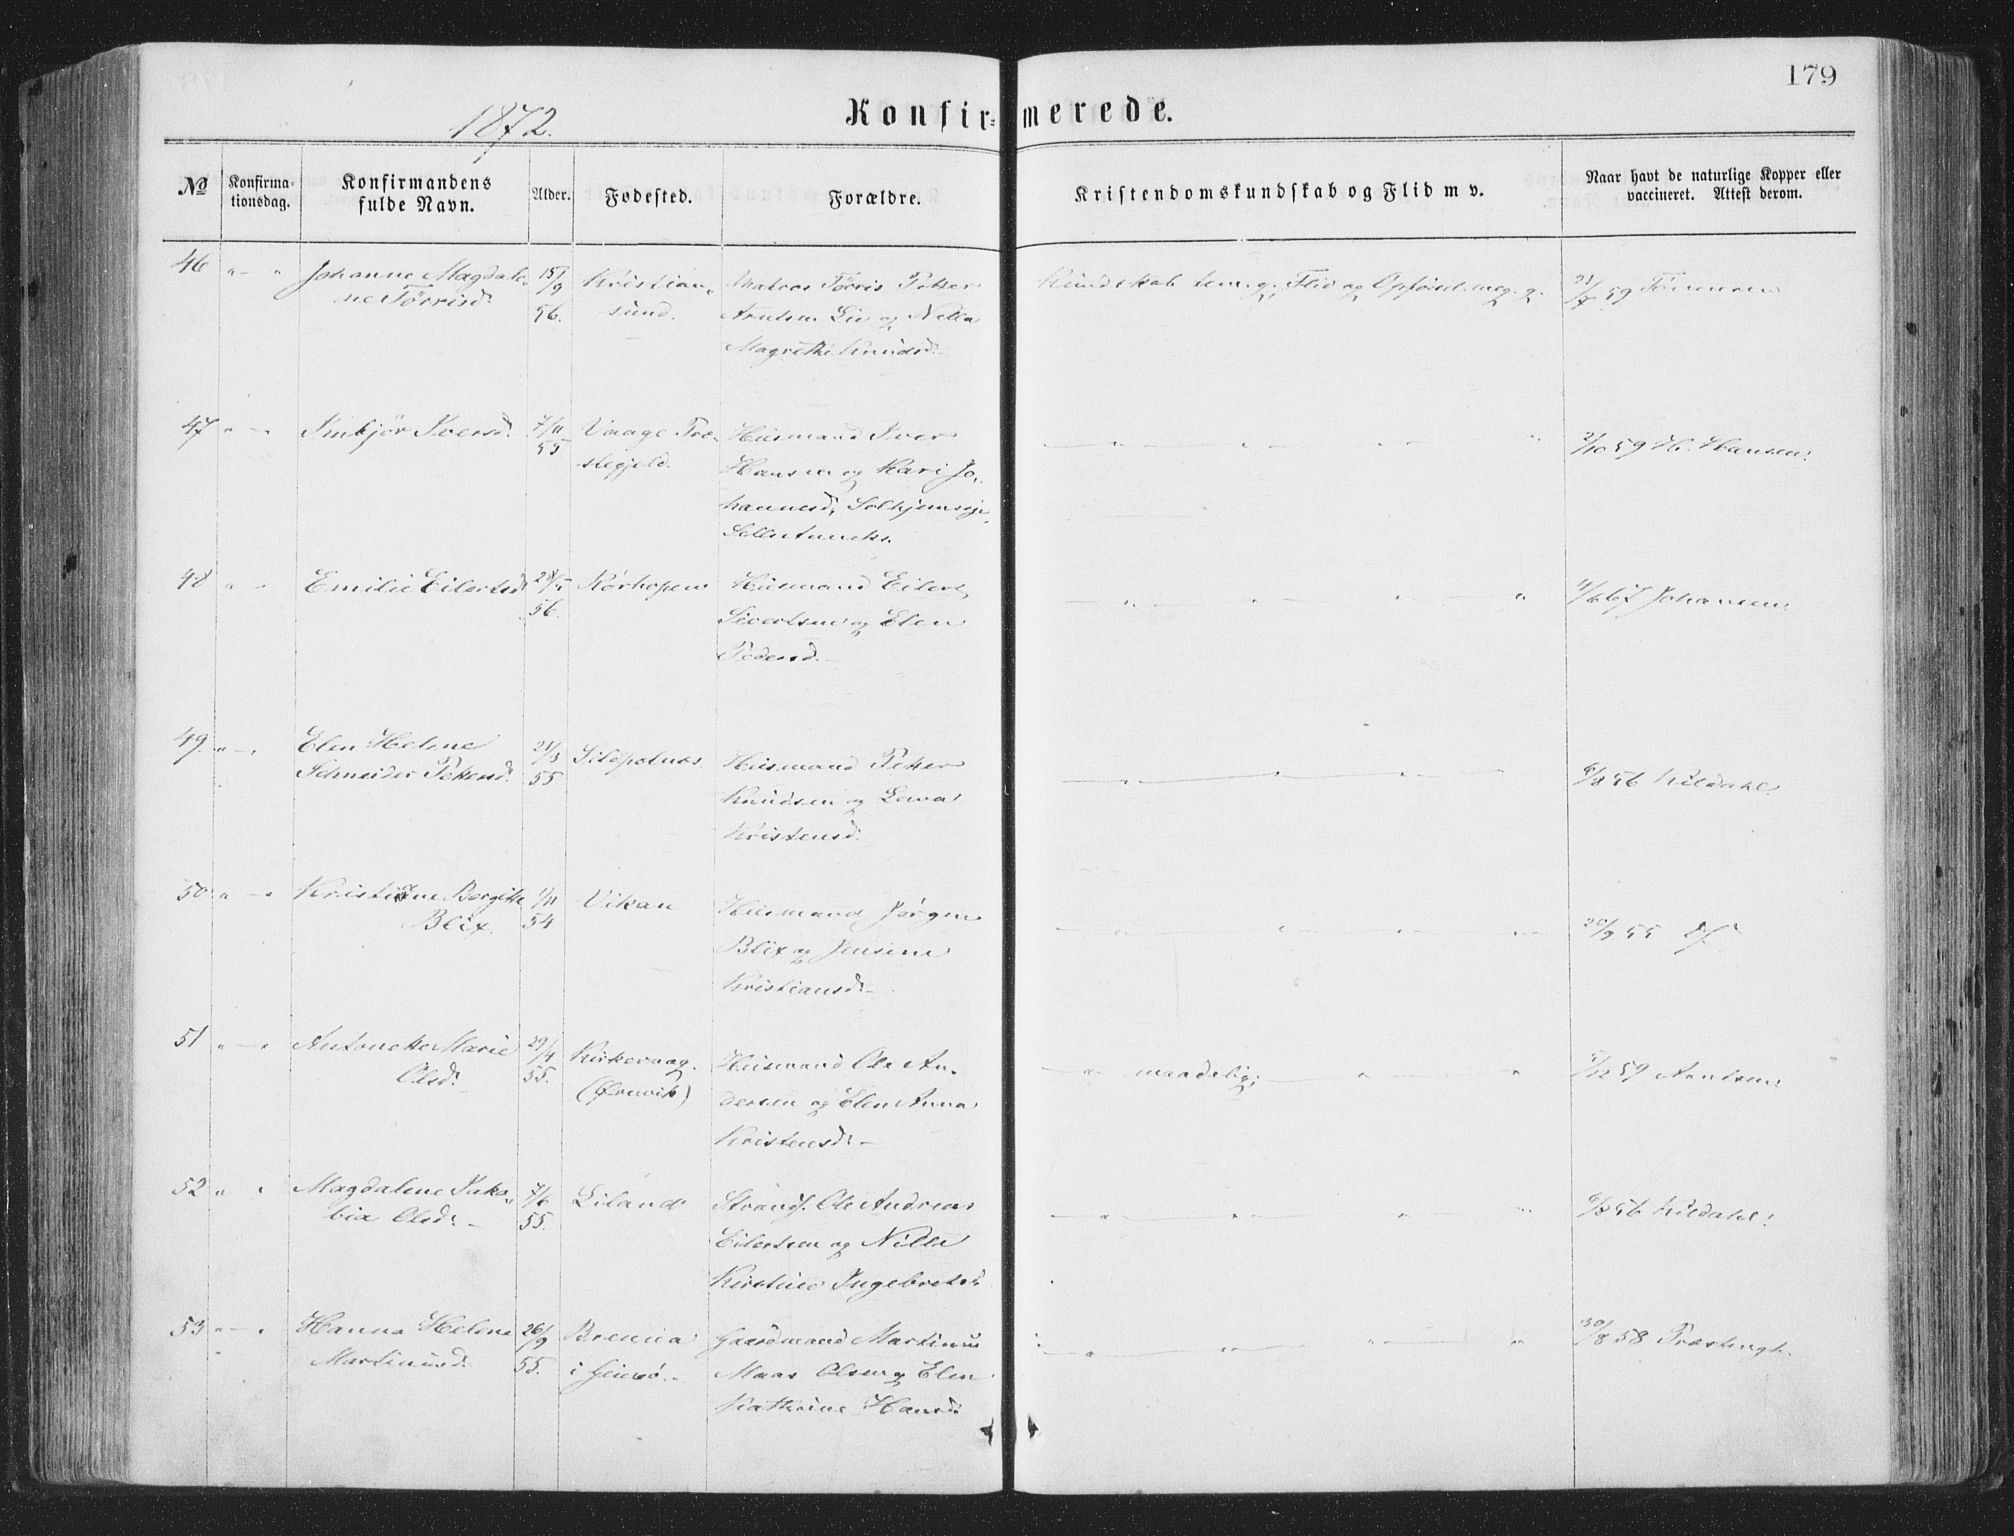 179
1872.
Konfirmerede.
No
Konfirma-
tionsdag.
Konfirmandens
fulde Navn.
Alder.
Fødested.
Forældre.
Kristendomskundskab og Flid m v.
Naar havt de naturlige Kopper eller
vaccineret. Attest derom.
46 " — "
Johanne Magdale-
ne Tørrisd.
15/9
56.
Kristian-
sund.
Matros Tørris Petter
Arntsen Lie og Nella
Magrethe Knudsd.
Kundskab tem. g., Flid og Opførsel meg. g.
21/7 59
47 " — "
Sinbjør Iversd.
7/11
55
Vaage Præ-
stegjeld.
Husmand Iver
Hansen og Kari Jo-
hannesd., Solhjemseje
2/10 59 H. Hansen.
48 " —
Emilie Eilertsd
56.
Rørhopen
Husmand Eilert
Sivertsen og Elen
Pedersd. —
4/6 67 Johansen.
49. " — "
Elen Helene
Schneider Pettersd.
21/3
55
Sildpolnes.
Husmand Petter
Knudsen og Lava
Kristensd.
6/8 56 Kildahl.
50 " — "
Kristine Bergitte
Blix.
1/11
54
Vikan
Husmand Jørgen
Blix og Jensine
Kristiansd. —
20/9 55 df.
51 " — "
Antonette Marie
Olsd. —
29/4
55.
Kirkevaag.
(Ørnvik)
Husmand Ole An-
dersen og Elen Anna
Kristensd. —
— " maadelig; — " "
5/12 59 Arntsen.
52 " "
Magdalene Jako-
bia Olsd. —
7/6
55.
Liland
Strands. Ole Andreas
Eilertsen og Nille
Kirstine Ingebretsd.
6/8 56 Kildahl.
53 " — "
Hanna Helena
Martinusd.
26/9
55.
Gaardmand Martinus
Maas Olsen og Elen
Kathrine Hansd.
30/8 58